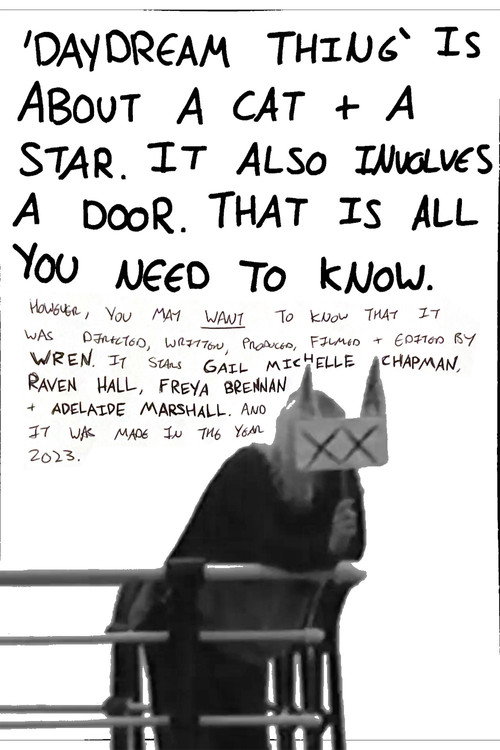 'DAYDREAM THING' IS
ABOUT A CAT + A
STAR. IT ALSO INVOLVES
A DOOR. THAT IS ALL
YOU NEED TO KNOW.
HOWEVER, YOU MAY WANT TO KNOW THAT IT
WAS DIRECTED, WRITTEN, PRODUCED, FILMED + EDITED BY
WREN. IT STARS GAIL MICHELLE CHAPMAN,
RAVEN HALL, FREYA BRENNAN
+ ADELAIDE MARSHALL. AND
IT WAS MADE IN THE YEAR
2023.
XX